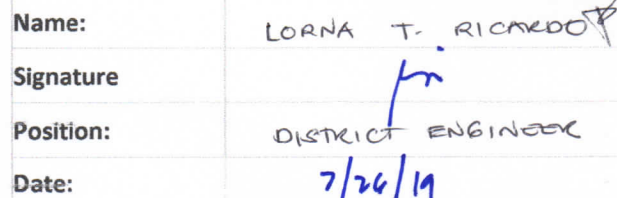 Name: LORNA T. RICARDO
Signature
Position: DISTRICT ENGINEER
Date: 7/26/19